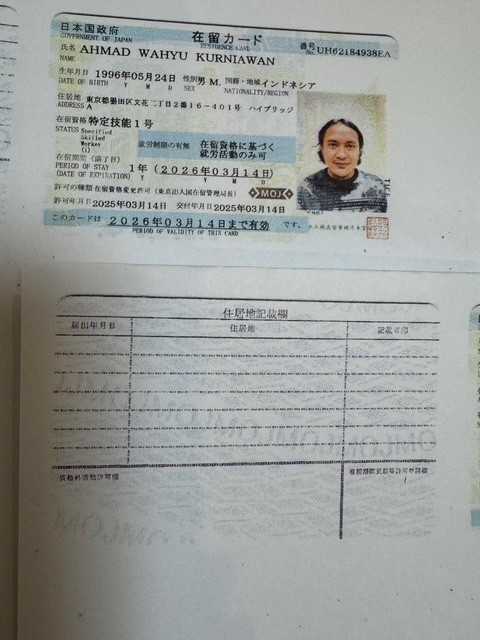 日本国政府 在留カード 番号 UH62184938EA
GOVERNMENT OF JAPAN RESIDENCE CARD No.
氏名 AHMAD WAHYU KURNIAWAN
NAME
生年月日 1996年05月24日 性別 男 M. 国籍・地域 インドネシア
DATE OF BIRTH Y M D SEX NATIONALITY/REGION
住居地 東京都墨田区文花二丁目2番16-401号 ハイブリッジ
ADDRESS A
在留資格 特定技能1号
STATUS Specified
Skilled
Worker
(i)
就労制限の有無 在留資格に基づく
就労活動のみ可
在留期間(満了日) 1年(2026年03月14日)
PERIOD OF STAY
(DATE OF EXPIRATION) Y M D
許可の種類 在留資格変更許可(東京出入国在留管理局長) MOJ
許可年月日 2025年03月14日 交付年月日 2025年03月14日
このカードは 2026年03月14日まで有効 です。
PERIOD OF VALIDITY OF THIS CARD
住居地記載欄
届出年月日 住居地 記載者印
資格外活動許可欄 在留期間更新等許可申請欄